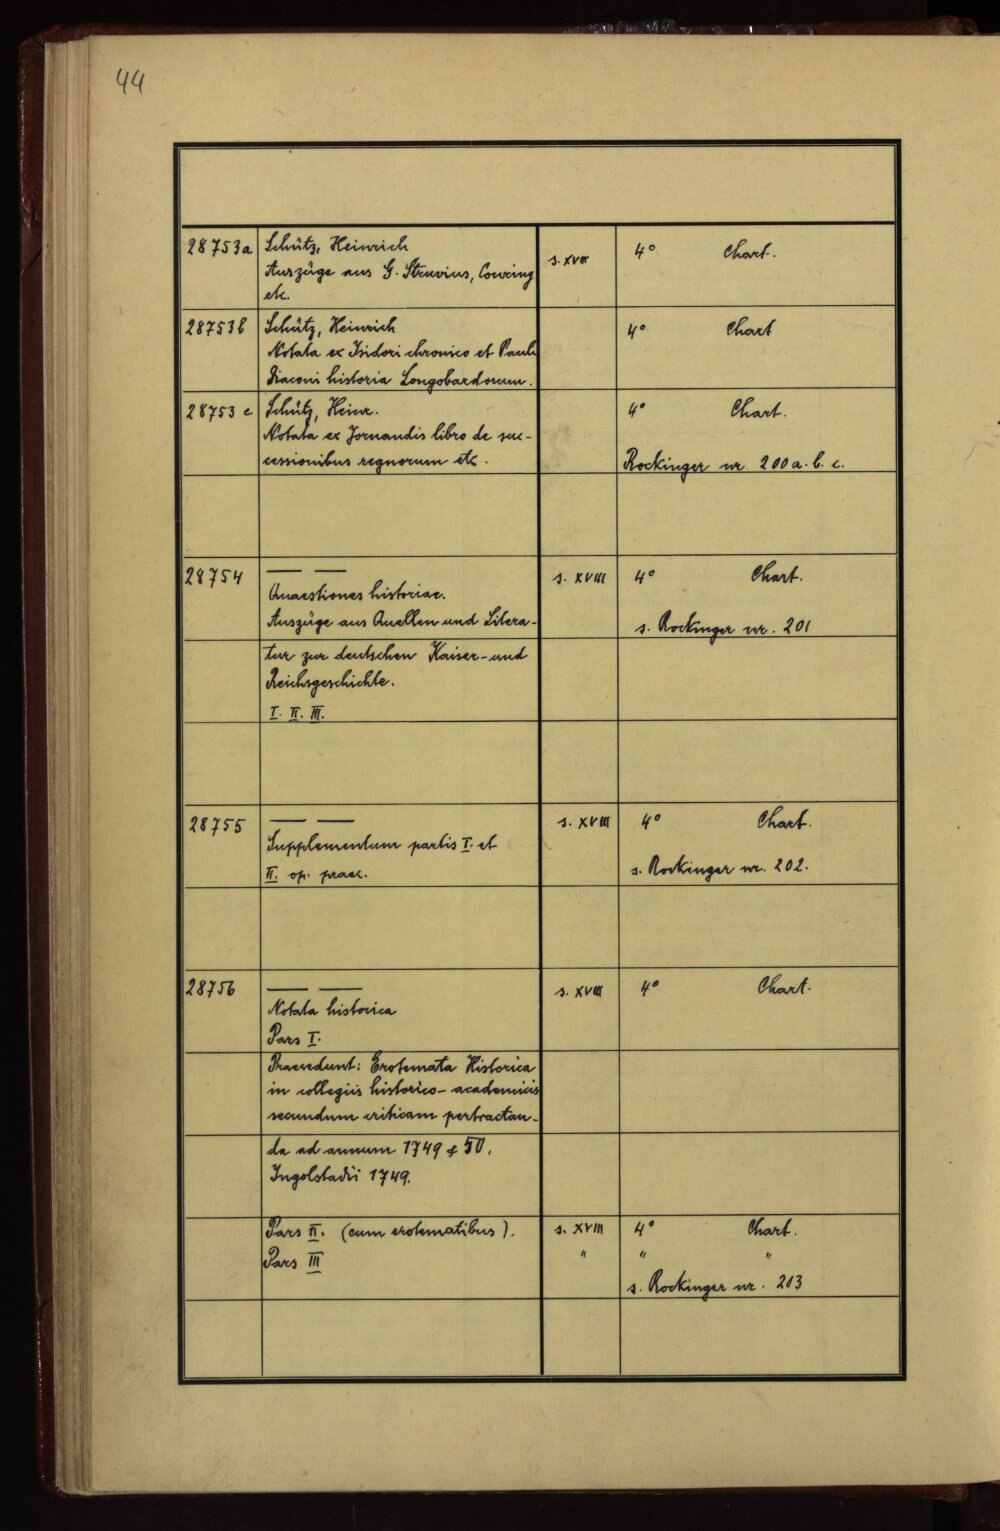 44
28753a Schütz, Heinrich s. XVIII 4° Chart.
Auszüge aus G. Struvius, Conring
etc.
28753b Schütz, Heinrich 4° Chart
Notata ex Isidori chronico et Pauli
Diaconi historia Longobardorum.
28753c Schütz, Heinr. 4° Chart.
Notata ex Jornandis libro de suc-
cessionibus regnorum etc. Rockinger nr. 200 a. b. c.
28754 — — s. XVIII 4° Chart.
Quaestiones historiae.
Auszüge aus Quellen und Litera- s. Rockinger nr. 201
tur zur deutschen Kaiser- und
Reichsgeschichte.
I. II. III.
28755 — — s. XVIII 4° Chart.
Supplementum partis I. et
II. op. praec. s. Rockinger nr. 202.
28756 — — s. XVIII 4° Chart.
Notata historica
Pars I.
Praecedunt: Erotemata Historica
in collegiis historico-academicis
secundum criticam pertractan-
da ad annum 1749 & 50.
Ingolstadii 1749.
Pars II. (cum erotematibus). s. XVIII 4° Chart.
Pars III " " "
s. Rockinger nr. 203